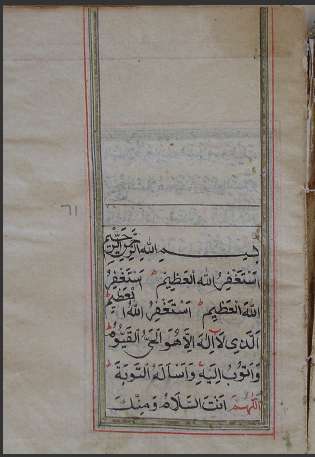 ٦١
بِسْمِ اللهِ الرَّحْمٰنِ الرَّحِيْمِ
اَسْتَغْفِرُ اللهَ الْعَظِيْمَ اَسْتَغْفِرُ
اللهَ الْعَظِيْمَ اَسْتَغْفِرُ اللهَ الْعَظِيْمَ
الَّذِي لَا اِلٰهَ اِلَّا هُوَ الْحَيُّ الْقَيُّوْمُ
وَاَتُوْبُ اِلَيْهِ وَاَسْاَلُهُ التَّوْبَةَ
اَللّٰهُمَّ اَنْتَ السَّلَامُ وَمِنْكَ